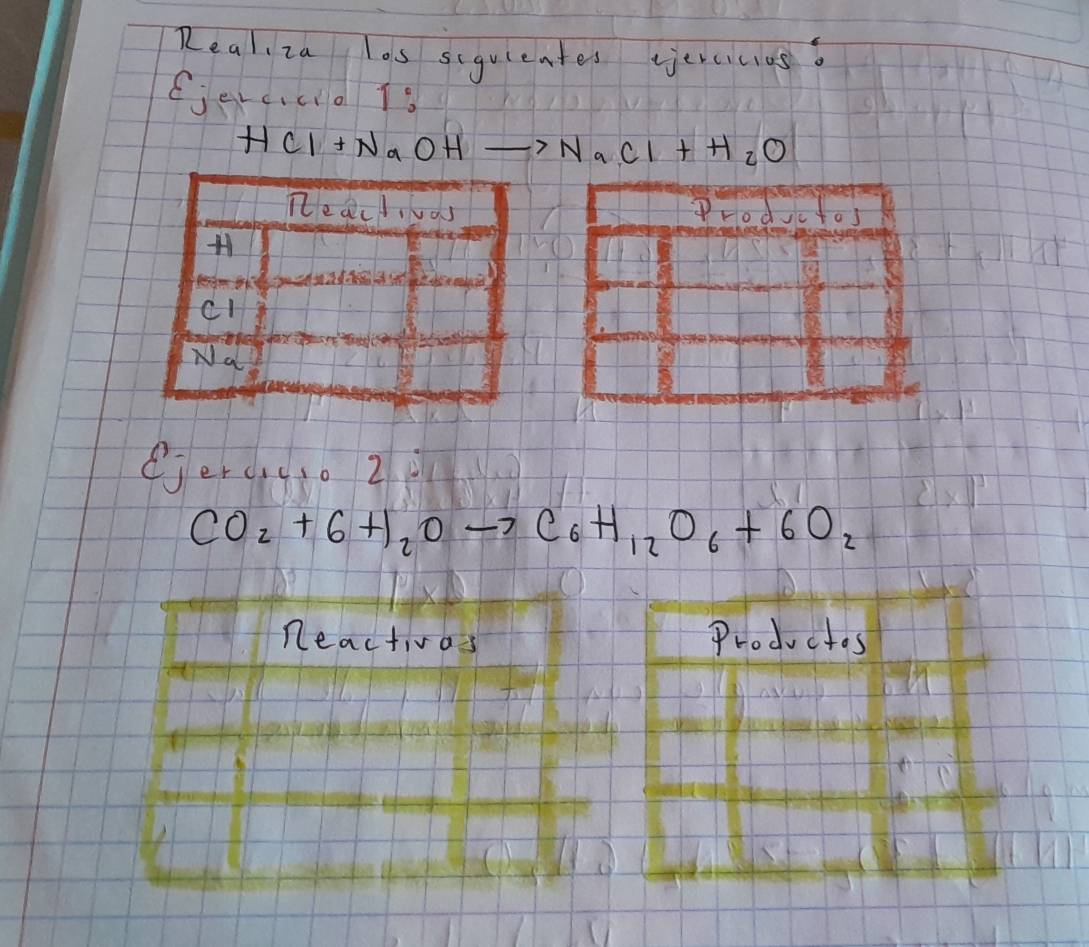 Realiza los siguientes ejercicios:
Ejercicio 1:
HCl + NaOH → NaCl + H₂O
Reactivos
Productos
H
Cl
Na
Ejercicio 2:
CO₂ + 6H₂O → C₆H₁₂O₆ + 6O₂
Reactivos
Productos